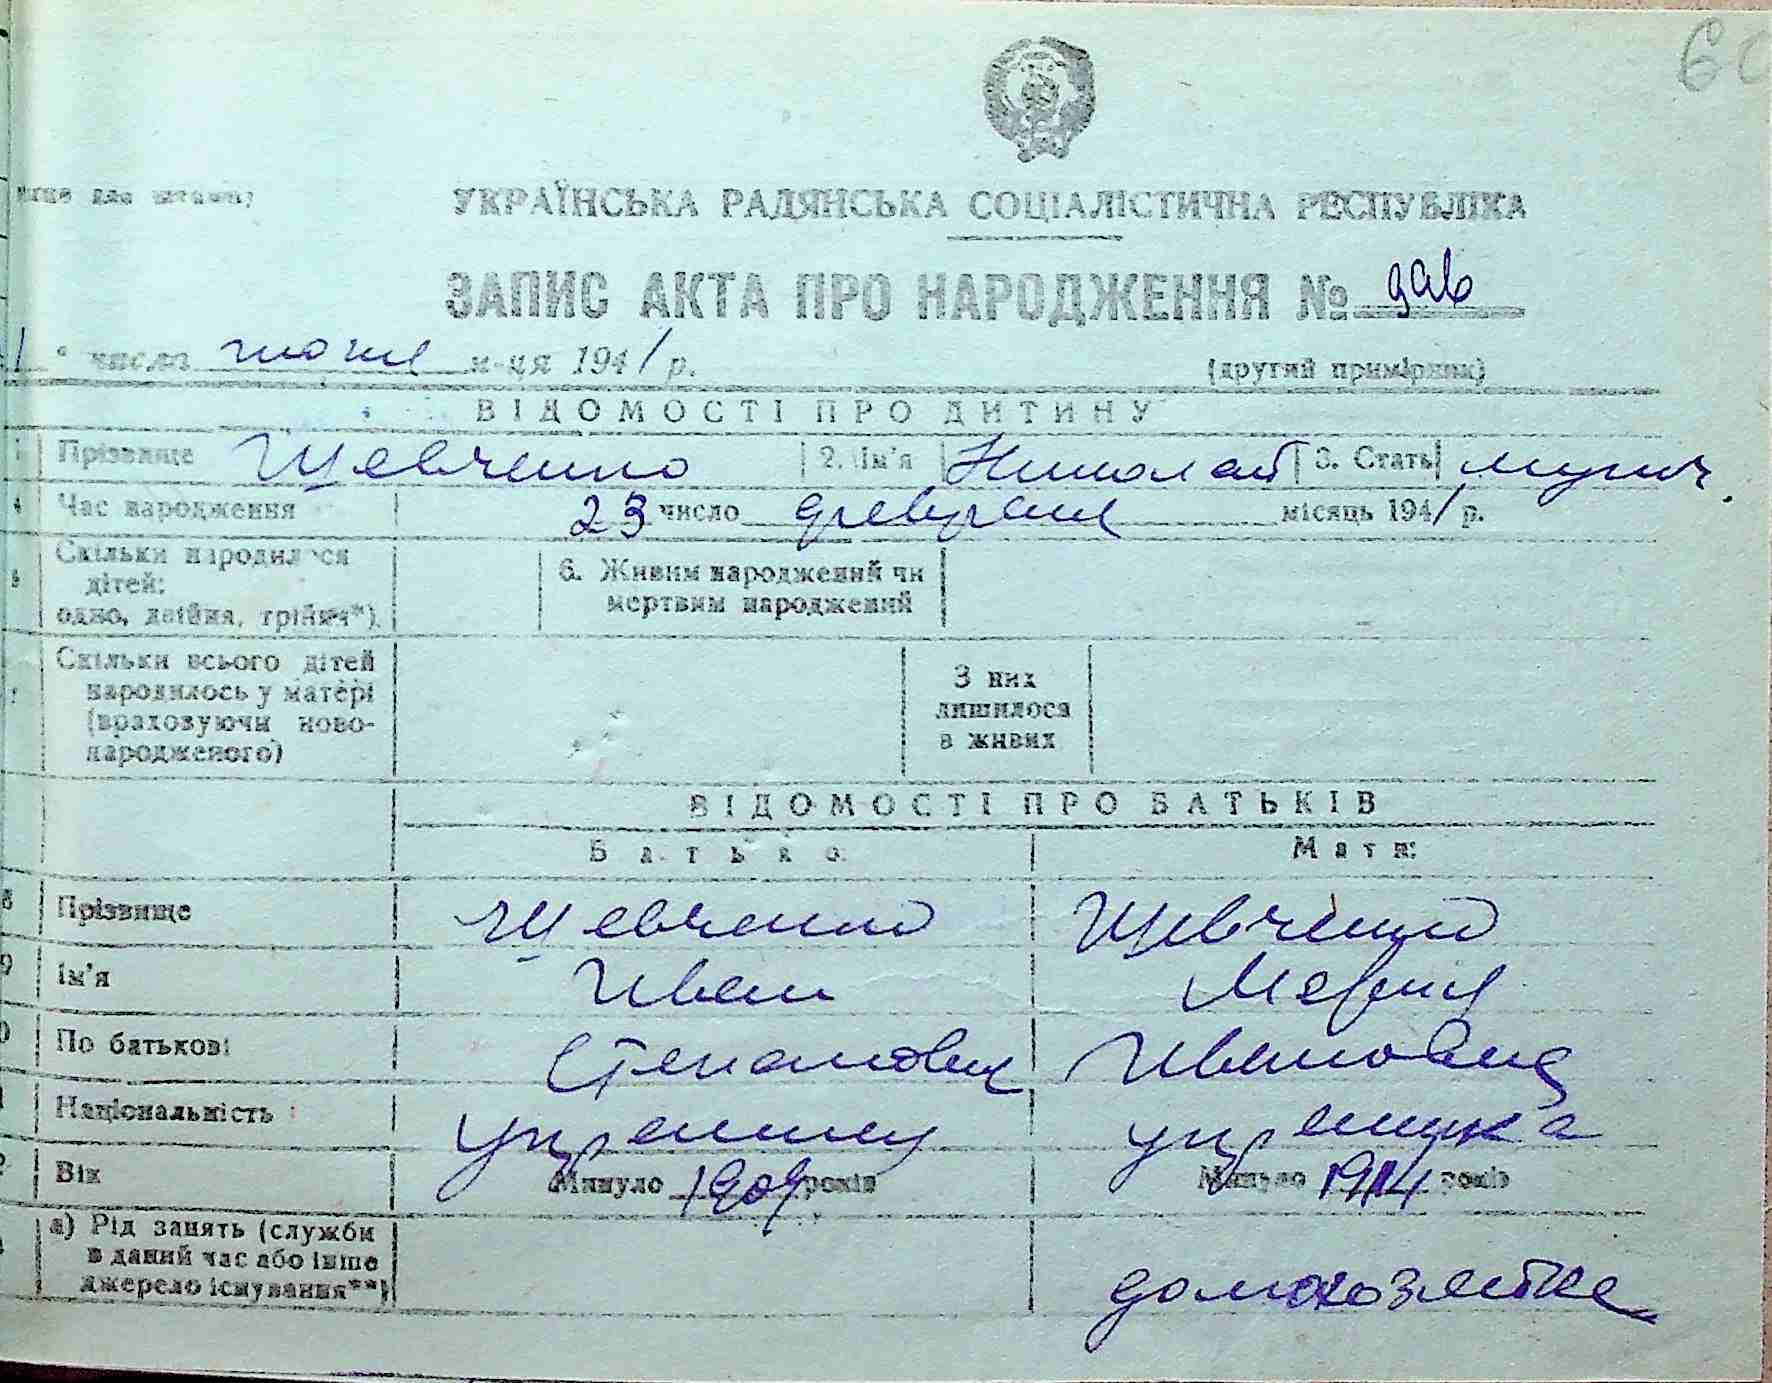 60
місце для штампу
УКРАЇНСЬКА РАДЯНСЬКА СОЦІАЛІСТИЧНА РЕСПУБЛІКА
ЗАПИС АКТА ПРО НАРОДЖЕННЯ №
1 " число июня м-ця 1941 р. (другий примірник)
ВІДОМОСТІ ПРО ДИТИНУ
Прізвище Шевченко 2. Ім'я Николай 3. Стать мужч.
4 Час народження 23 число февраля місяць 1941 р.
5 Скільки народилося дітей: одно, двійня, трійня*). 6. Живим народжений чи мертвим народжений
7 Скільки всього дітей народилось у матері (враховуючи новонародженого) З них лишилося в живих
ВІДОМОСТІ ПРО БАТЬКІВ
Батько: Мати:
8 Прізвище Шевченко Шевченко
9 Ім'я Иван Мария
0 По батькові Степанович Ивановна
1 Національність украинец украинка
2 Вік Минуло 1909 років Минуло 1914 років
а) Рід занять (служби в даний час або інше джерело існування**) домохозяйка